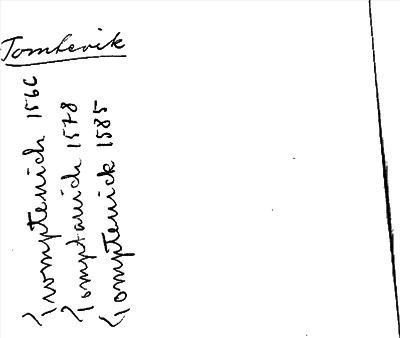 Tomtevik
Tromptenich 1566
Tomptauich 1578
Tomptenick 1585